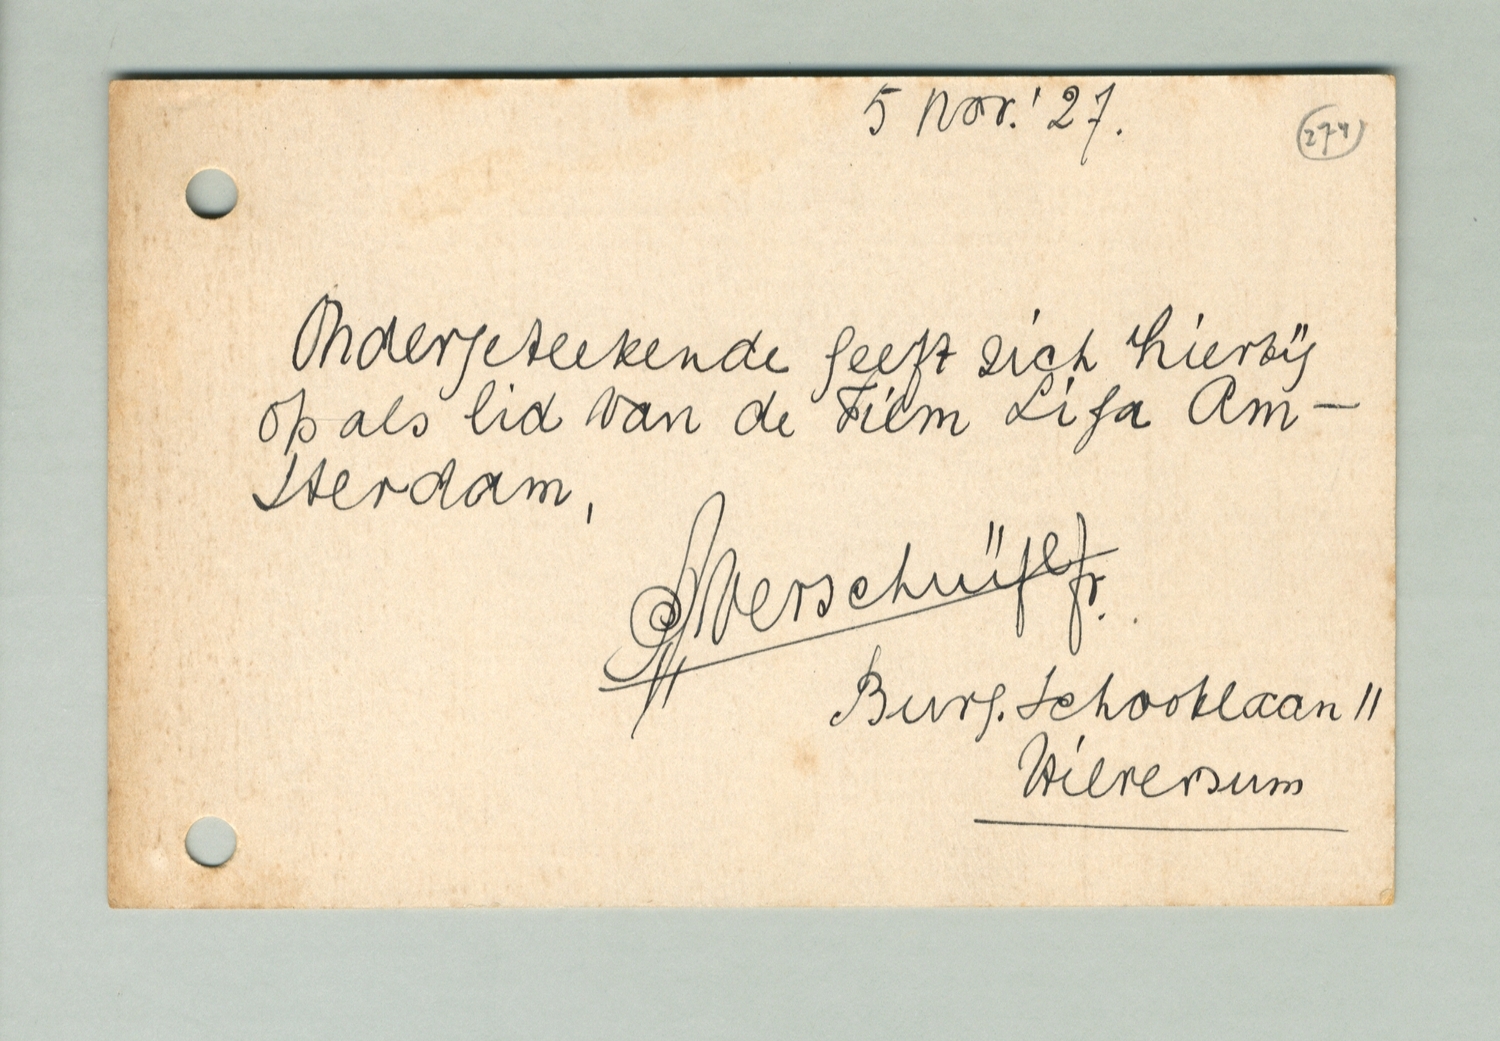 5 Nov. '27.
274
Ondergeteekende geeft zich hierbij
op als lid van de Film Liga Am-
sterdam,
Verschuijl jr.
Burg. Schooklaan 11
Hilversum